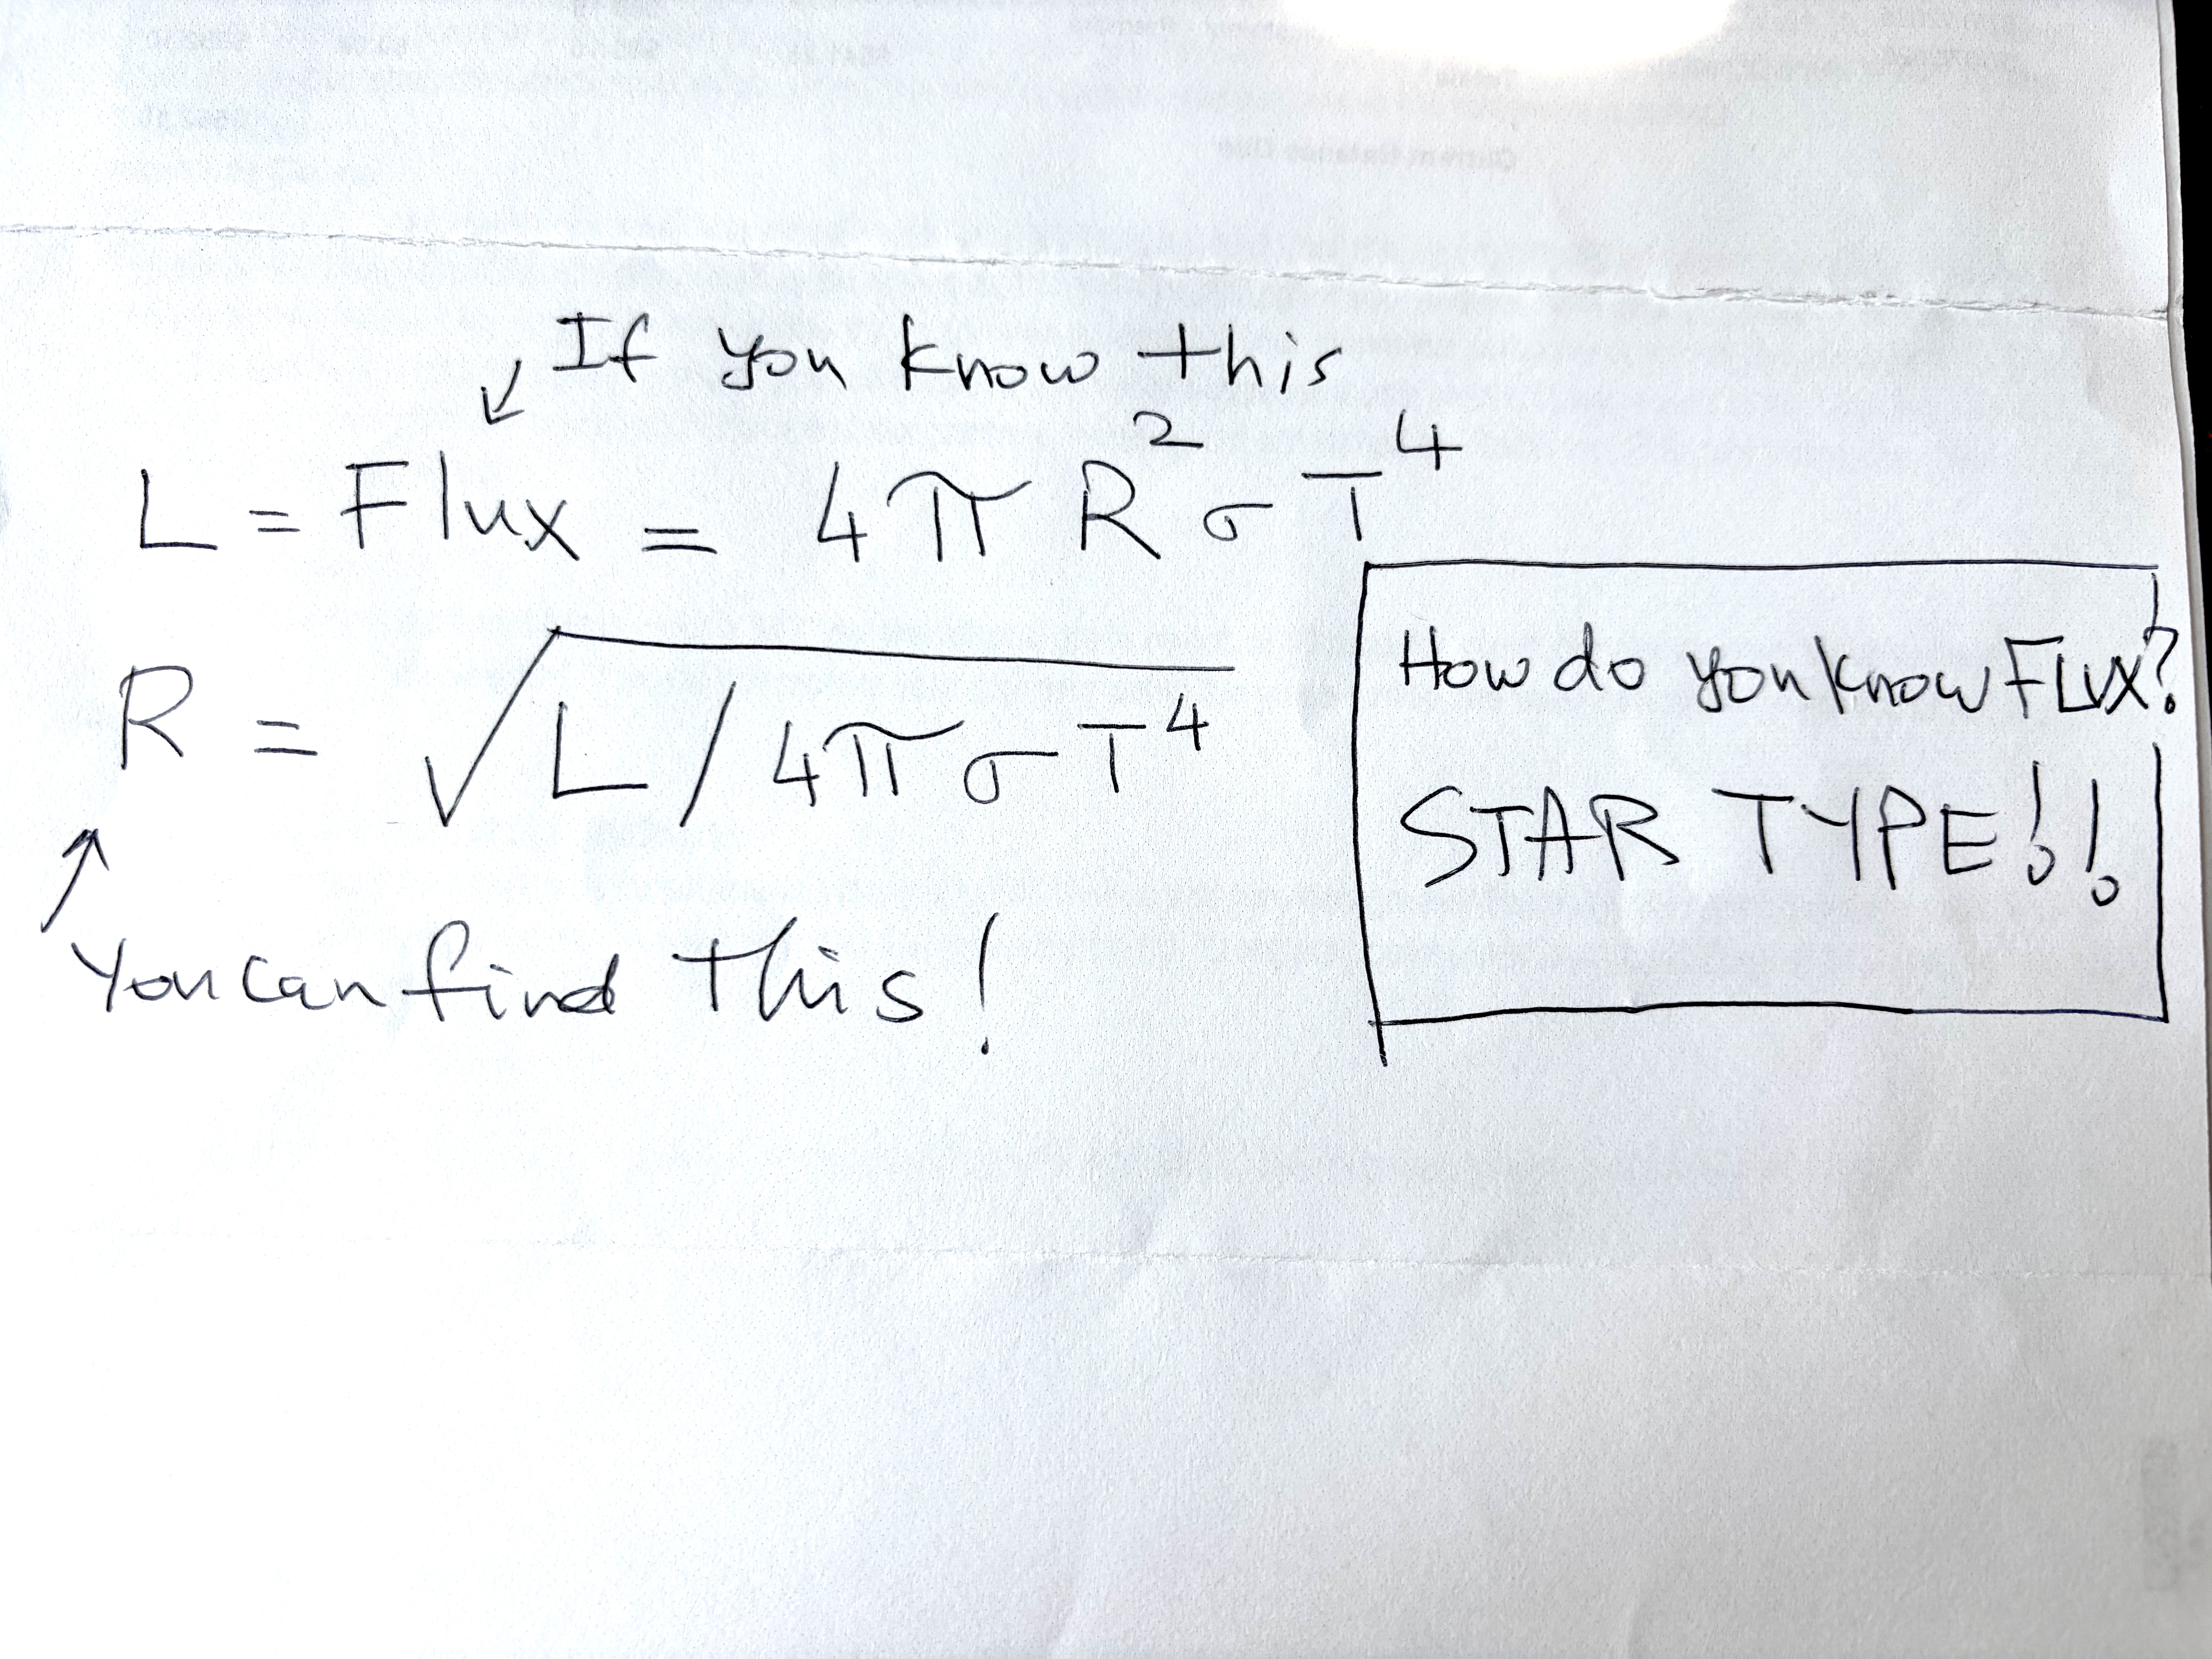 If you know this
L = Flux = 4π R² σ T⁴
R = √L / 4π σ T⁴
You can find this!
How do you know FLUX?
STAR TYPE!!